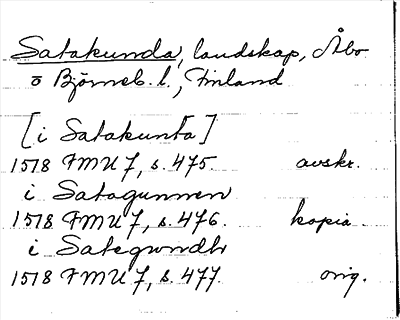 Satakunda, landskap, Åbo
o Björneb. l., Finland
[i Satakunta]
1518 FMU 7, s. 475. avskr.
i Satagunnen
1518 FMU 7, s. 476. kopia
i Sategwndh
1518 FMU 7, s. 477. orig.